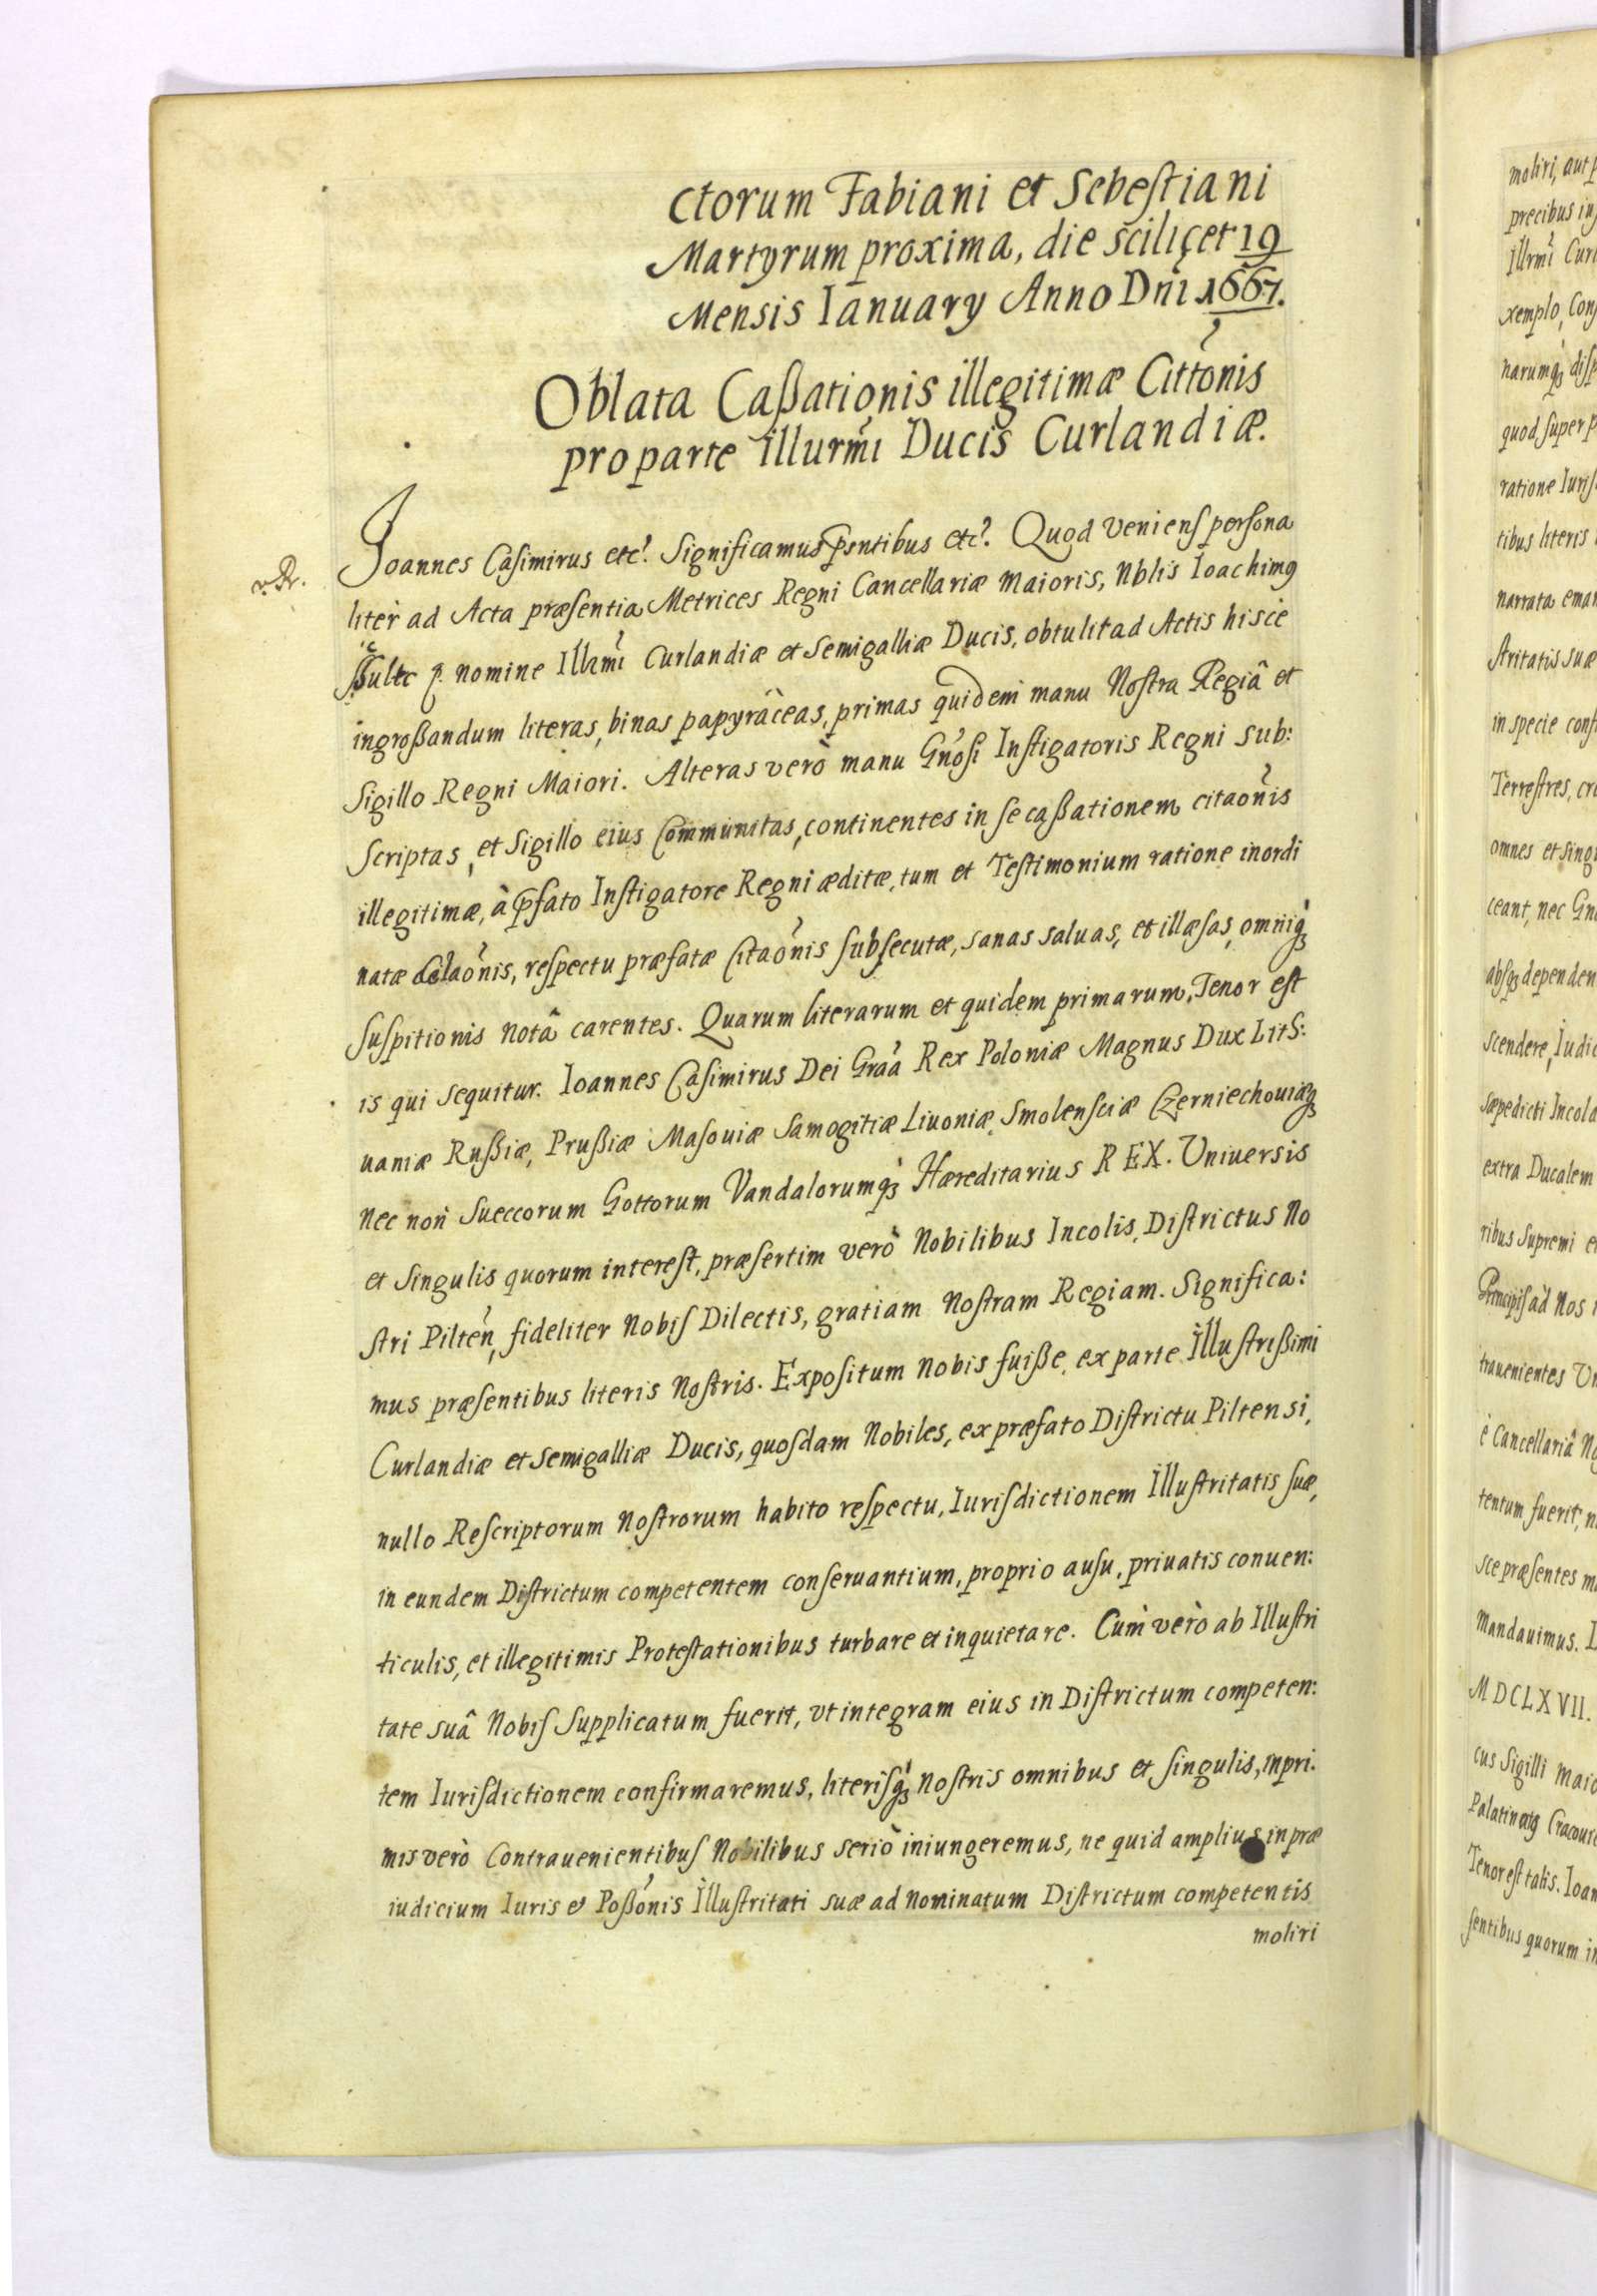 ctorum Fabiani et Sebestiani
Martyrum proxima, die scilicet 19
Mensis Ianuary Anno Dni 1667.
Oblata Caßationis illegitimæ Cittonis
pro parte illurmi Ducis Curlandiæ.
Joannes Casimirus etc. Significamus pntibus etc. Quod veniens persona
liter ad Acta præsentia Metrices Regni Cancellariæ Maioris, Nblis Ioachimg
nomine Illrmi Curlandiæ et Semigalliæ Ducis, obtulit ad Actis hisce
ingroßandum literas, binas papyrâceas, primas quidem manu Nostra Regiâ et
Sigillo Regni Maiori. Alteras verò manu Gnosi Instigatoris Regni sub:
scriptas, et Sigillo eius Communitas, continentes in se caßationem citaonis
illegitimæ, à pfato Instigatore Regni æditæ, tum et Testimonium ratione inordi
natæ citaonis, respectu præfatæ Citaonis subsecutæ, sanas saluas, et illæsas, omniq3
suspitionis notâ carentes. Quarum literarum et quidem primarum, Tenor est
is qui sequitur. Ioannes Casimirus Dei Graa Rex Poloniæ Magnus Dux Lith:
uaniæ Rußiæ, Prußiæ Masouiæ Samogitiæ Liuoniæ, Smolensciæ Czerniechouiæq3
nec non Sueccorum Gottorum Vandalorumq3 Hæreditarius REX. Vniuersis
et Singulis quorum interest, præsertim verò Nobilibus Incolis, Districtus No
stri Pilten, fideliter Nobis Dilectis, gratiam Nostram Regiam. Significa:
mus præsentibus literis Nostris. Expositum Nobis fuiße, ex parte Illustrißimi
Curlandiæ et Semigalliæ Ducis, quosdam Nobiles, ex præfato Districtu Piltensi,
nullo Rescriptorum Nostrorum habito respectu, Iurisdictionem Illustritatis suæ,
in eundem Districtum competentem conseruantium, proprio ausu, priuatis conuen:
ticulis, et illegitimis Protestationibus turbare et inquietare. Cum verò ab Illustri
tate suâ Nobis Supplicatum fuerit, vt integram eius in Districtum competen:
tem Iurisdictionem confirmaremus, literisq3 Nostris omnibus et singulis, inpri.
mis verò Contrauenientibus Nobilibus seriò iniungeremus, ne quid amplius in præ
iudicium Iuris & Poßonis Illustritati suæ ad nominatum Districtum competentis
moliri
moliri, aut
precibus
Illrmi
xemplo,
narumq3
quod super
ratione
tibus literis
narrata
stritatis suæ
in specie
Terrestres,
omnes et
ceant, nec
absq3
scendere,
sæpedicti
extra Ducalem
ribus Supremi
Principis ad Nos
trauenientes
è Cancellariâ
tentum fuerit,
sce præsentes
mandauimus.
MDCLXVII.
cus Sigilli
Tenor est talis.
sentibus quorum